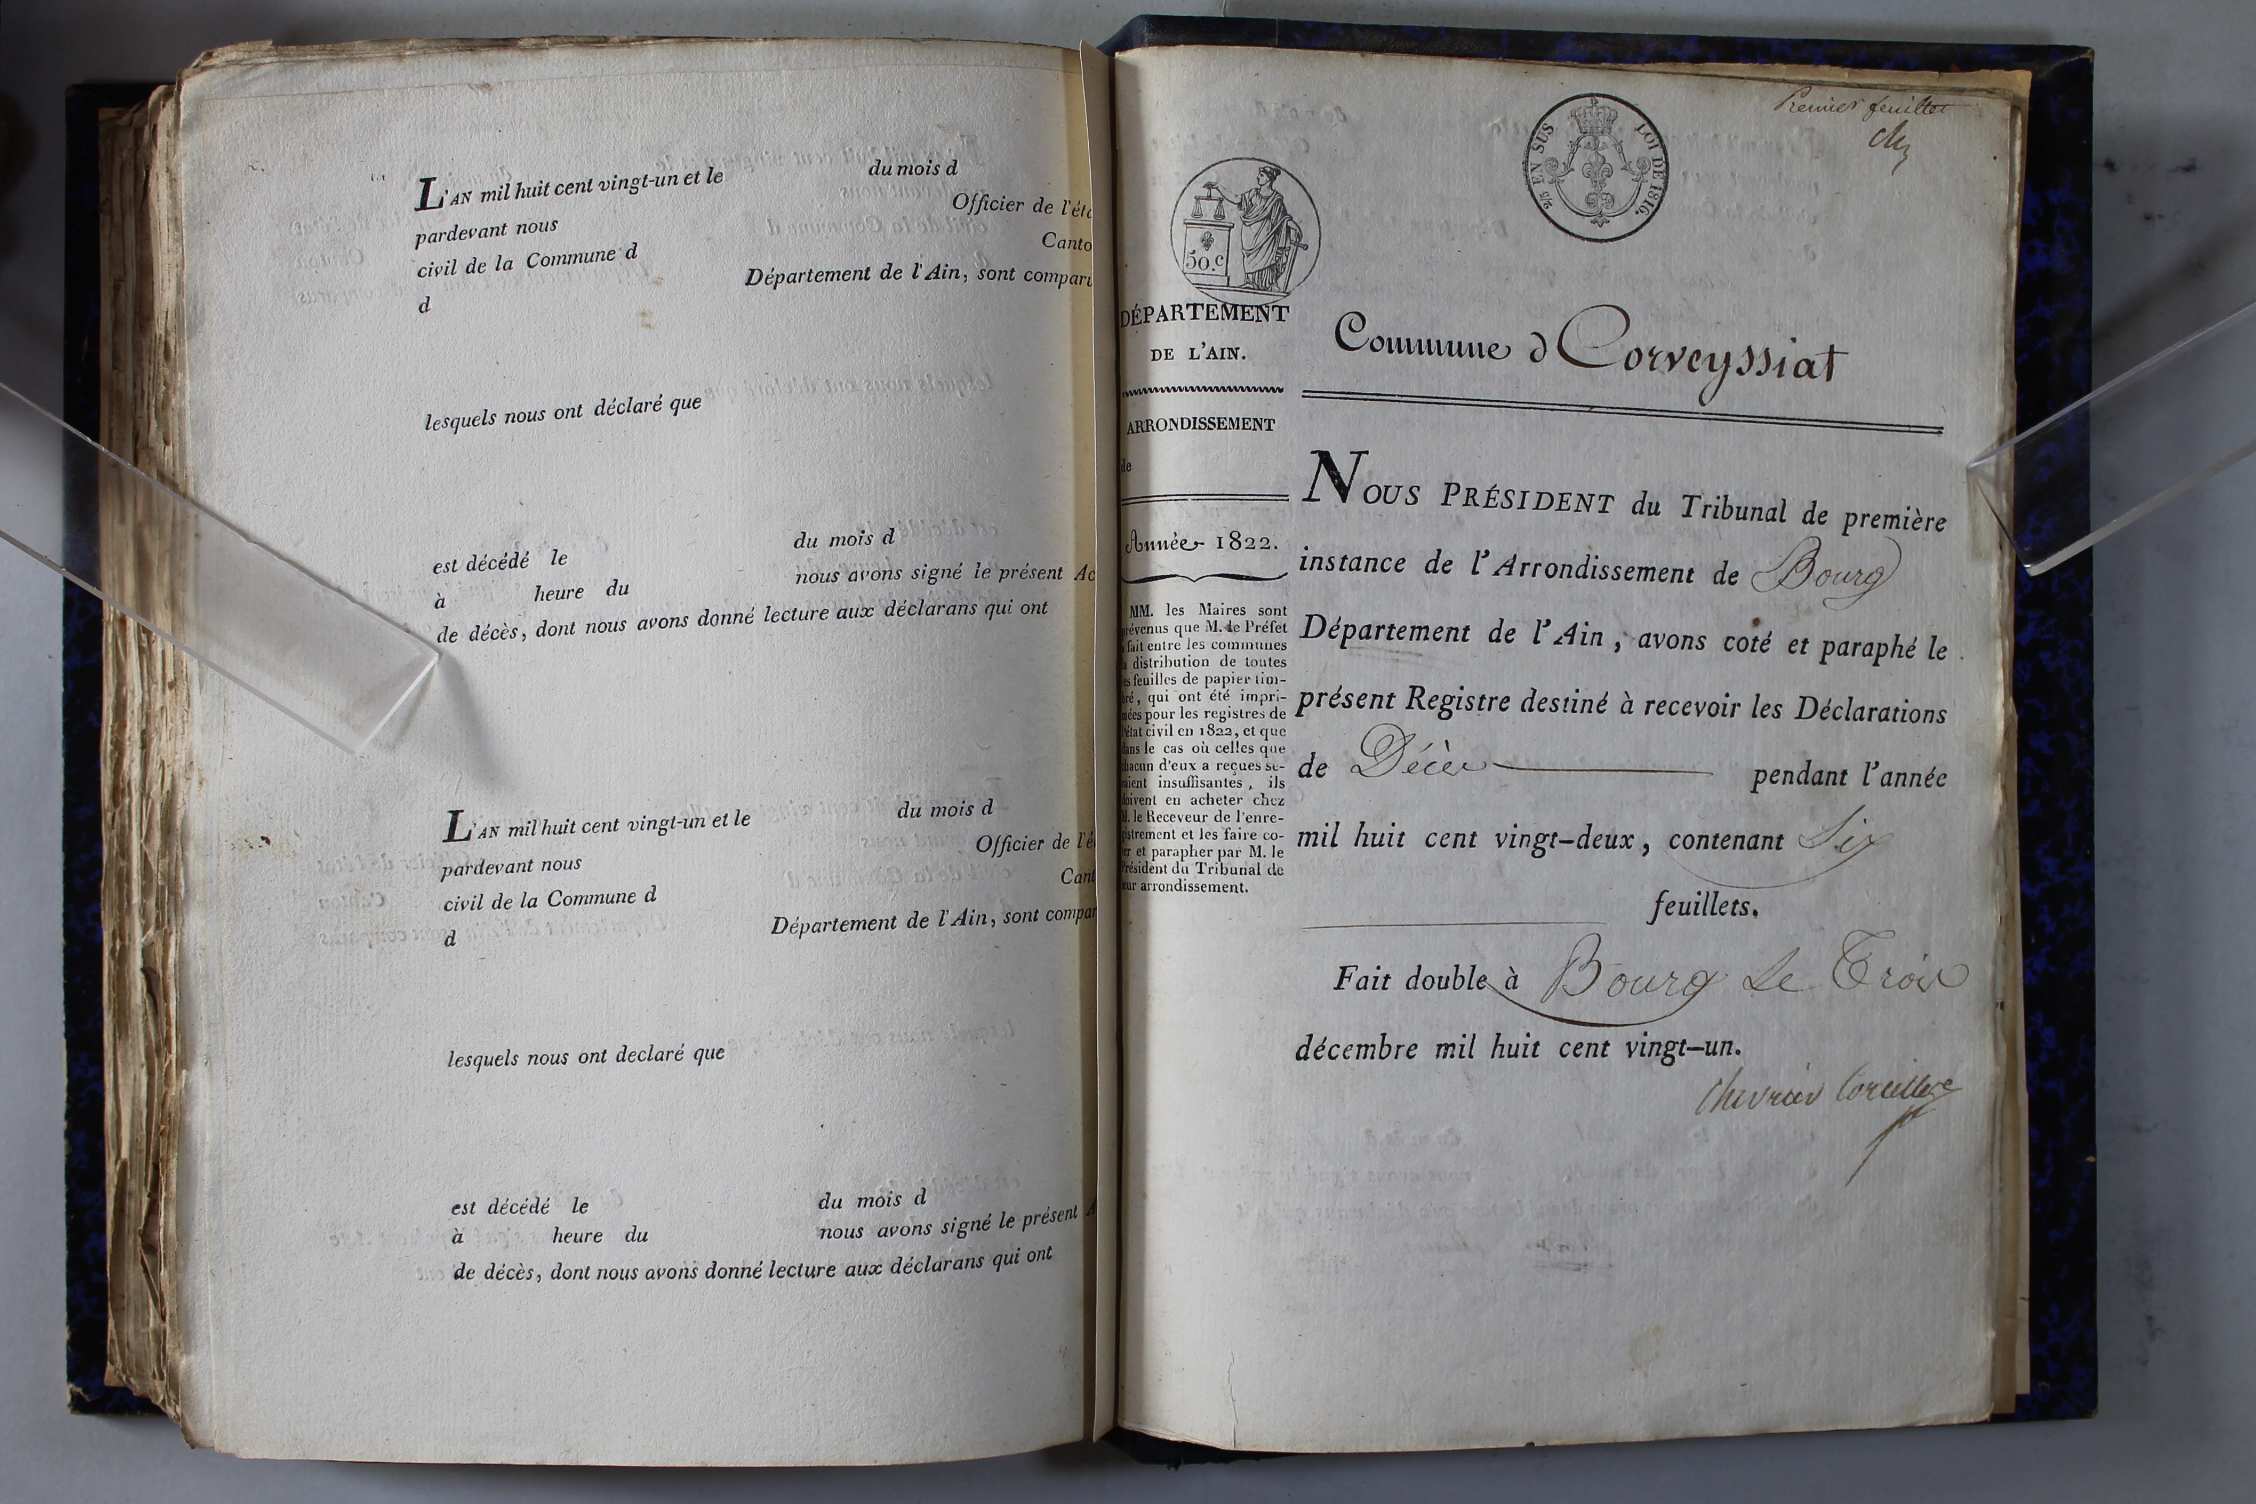 L'AN mil huit cent vingt-un et le du mois d
pardevant nous Officier de l'éta
civil de la Commune d Canto
d Département de l'Ain, sont comparu
lesquels nous ont déclaré que
est décédé le du mois d
à heure du nous avons signé le présent Ac
de décès, dont nous avons donné lecture aux déclarans qui ont
L'AN mil huit cent vingt-un et le du mois d
pardevant nous Officier de l'é
civil de la Commune d Cant
d Département de l'Ain, sont compar
lesquels nous ont declaré que
est décédé le du mois d
à heure du nous avons signé le présent A
de décès, dont nous avons donné lecture aux déclarans qui ont
Premier feuillet
2/5 EN SUS LOI DE 1816.
50.c
DÉPARTEMENT
DE L'AIN.
ARRONDISSEMENT
de
Année 1822.
MM. les Maires sont
prévenus que M. le Préfet
a fait entre les communes
la distribution de toutes
les feuilles de papier tim-
bré, qui ont été impri-
mées pour les registres de
l'état civil en 1822, et que
dans le cas où celles que
chacun d'eux a reçues se-
raient insuffisantes, ils
doivent en acheter chez
M. le Receveur de l'enre-
gistrement et les faire co-
ter et parapher par M. le
Président du Tribunal de
leur arrondissement.
Commune d Corveyssiat
NOUS PRÉSIDENT du Tribunal de première
instance de l'Arrondissement de Bourg
Département de l'Ain, avons coté et paraphé le
présent Registre destiné à recevoir les Déclarations
de Décès pendant l'année
mil huit cent vingt-deux, contenant Six
feuillets.
Fait double à Bourg Le Trois
décembre mil huit cent vingt-un.
Chevrier Corcelles